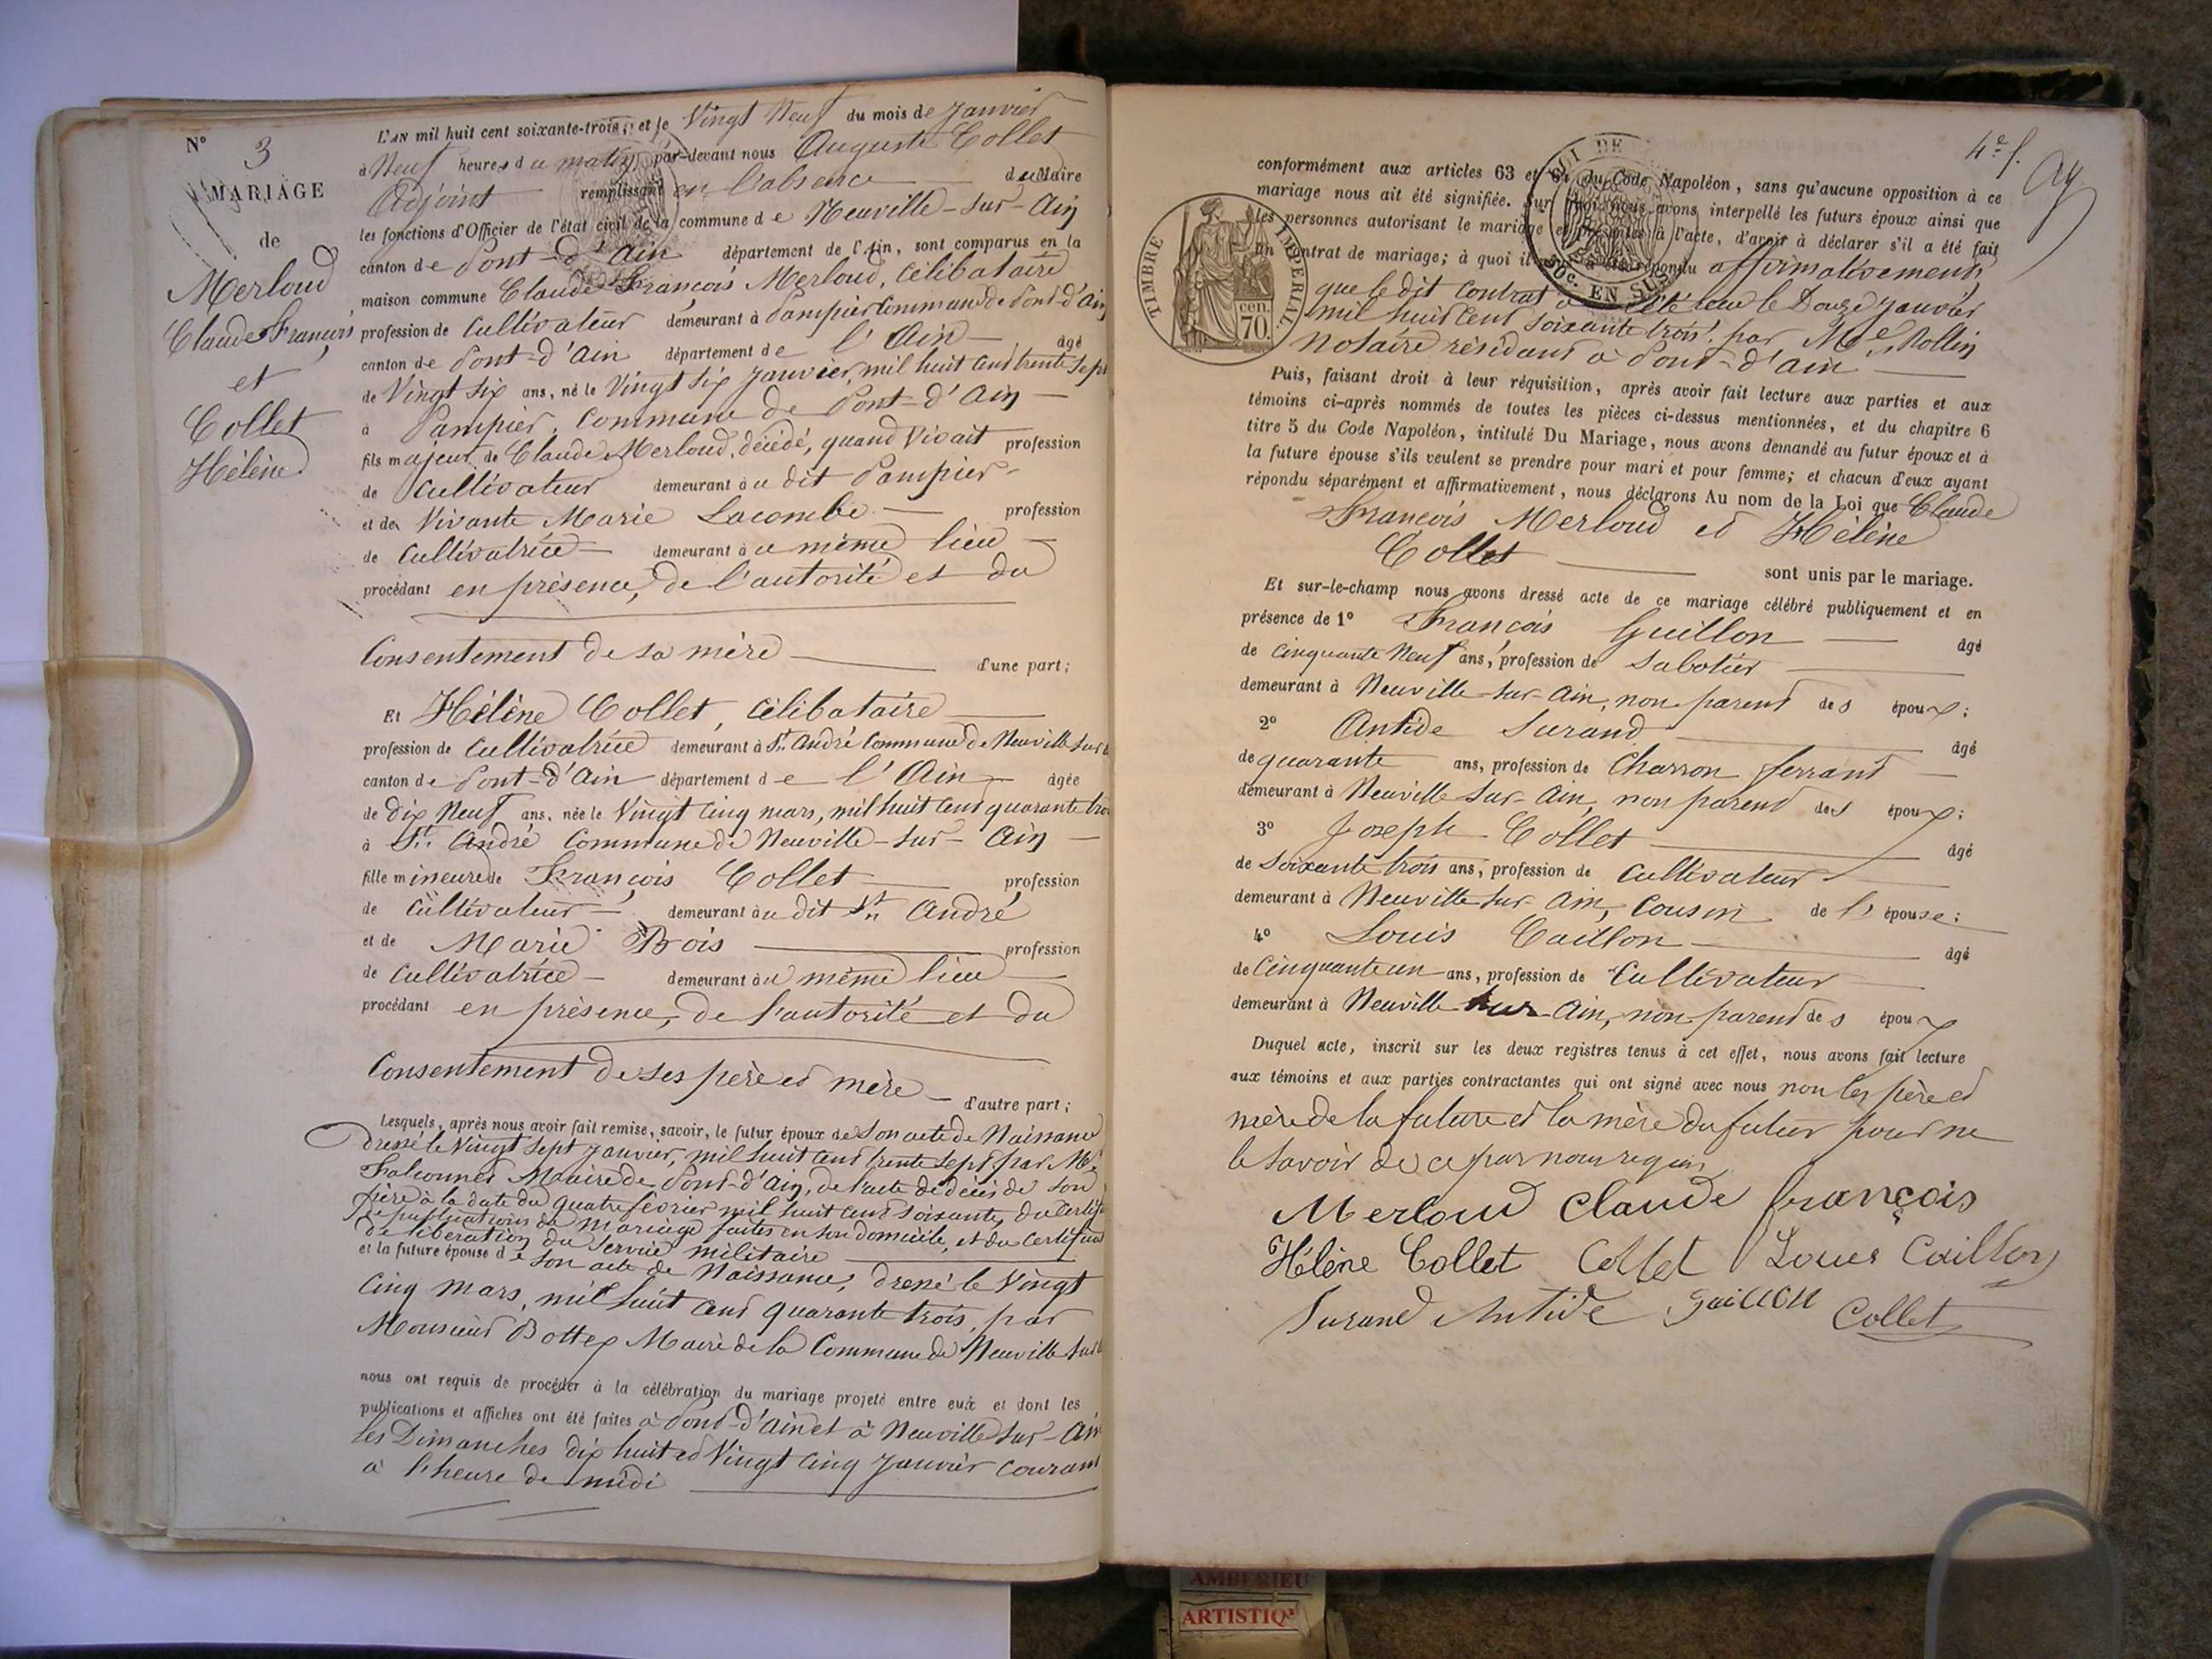 N° 3
MARIAGE
de
Merloud
Claude François
et
Collet
Hélène
L'AN mil huit cent soixante-trois, et le Vingt Neuf du mois de Janvier
à Neuf heures du matin, par-devant nous Auguste Collet
Adjoint remplissant en l'absence du Maire
les fonctions d'Officier de l'état civil de la commune de Neuville-sur-Ain
canton de Pont-d'Ain département de l'Ain, sont comparus en la
maison commune Claude François Merloud, célibataire
profession de Cultivateur demeurant à Pampier Commune de Pont-d'Ain
canton de Pont-d'Ain département de l'Ain âgé
de Vingt six ans, né le Vingt six Janvier, mil huit cent trente sept
à Pampier, Commune de Pont-d'Ain
fils majeur de Claude Merloud, décédé, quand vivait profession
de Cultivateur demeurant au dit Pampier
et de Vivante Marie Lacombe profession
de Cultivatrice demeurant à ce même lieu
procédant en présence, de l'autorité et du
Consentement de sa mère d'une part;
Et Hélène Collet, célibataire
profession de Cultivatrice demeurant à St André Commune de Neuville sur
canton de Pont-d'Ain département de l'Ain âgée
de dix Neuf ans, née le Vingt Cinq mars, mil huit cent quarante trois
à St André Commune de Neuville-sur-Ain
fille mineure de François Collet profession
de Cultivateur demeurant au dit St André
et de Marie Bois profession
de Cultivatrice demeurant au même lieu
procédant en présence, de l'autorité et du
Consentement de ses père et mère d'autre part;
Lesquels, après nous avoir fait remise, savoir, le futur époux de Son acte de Naissance
dressé le Vingt sept Janvier, mil huit cent trente sept par Mr
Falconnet Maire de Pont-d'Ain, de l'acte de décès de son
père à la date du quatre février mil huit cent soixante, du Certificat
de publications de mariage faites en son domicile, et du certificat
de libération du service militaire
et la future épouse de son acte de Naissance, dressé le Vingt
Cinq Mars, mil huit cent quarante trois, par
Monsieur Bottex Maire de la Commune de Neuville sur
nous ont requis de procéder à la célébration du mariage projeté entre eux et dont les
publications et affiches ont été faites à Pont-d'Ain et à Neuville sur-Ain
les Dimanches dix huit et Vingt Cinq Janvier courant
à l'heure de midi
4e f.
conformément aux articles 63 et 64 du Code Napoléon, sans qu'aucune opposition à ce
mariage nous ait été signifiée. Sur quoi nous avons interpellé les futurs époux ainsi que
les personnes autorisant le mariage et présentes à l'acte, d'avoir à déclarer s'il a été fait
un contrat de mariage; à quoi il nous a été répondu affirmativement,
que le dit Contrat a été reçu le Douze Janvier
mil huit cent soixante trois, par Me Rollin
notaire résidant à Pont-d'Ain
TIMBRE IMPERIAL
cen. 70.
50c. EN SUS
Puis, faisant droit à leur réquisition, après avoir fait lecture aux parties et aux
témoins ci-après nommés de toutes les pièces ci-dessus mentionnées, et du chapitre 6
titre 5 du Code Napoléon, intitulé Du Mariage, nous avons demandé au futur époux et à
la future épouse s'ils veulent se prendre pour mari et pour femme; et chacun d'eux ayant
répondu séparément et affirmativement, nous déclarons Au nom de la Loi que Claude
François Merloud et Hélène
Collet sont unis par le mariage.
Et sur-le-champ nous avons dressé acte de ce mariage célébré publiquement et en
présence de 1° François Guillon âgé
de cinquante Neuf ans, profession de Sabotier
demeurant à Neuville-sur-Ain, non parent des époux;
2° Antide Surand âgé
de quarante ans, profession de Charron ferrant
demeurant à Neuville sur-Ain, non parent des époux;
3° Joseph Collet âgé
de soixante trois ans, profession de Cultivateur
demeurant à Neuville sur Ain, Cousin de l'épouse;
4° Louis Caillon âgé
de Cinquante un ans, profession de Cultivateur
demeurant à Neuville sur Ain, non parent des époux
Duquel acte, inscrit sur les deux registres tenus à cet effet, nous avons fait lecture
aux témoins et aux parties contractantes qui ont signé avec nous non les père et
mère de la future et la mère du futur pour ne
le savoir de ce par nous requis
Merloud Claude françois
Hélène Collet Collet Louis Caillon
Surand Antide Guillon Collet
AMBERIEU
ARTISTIQ